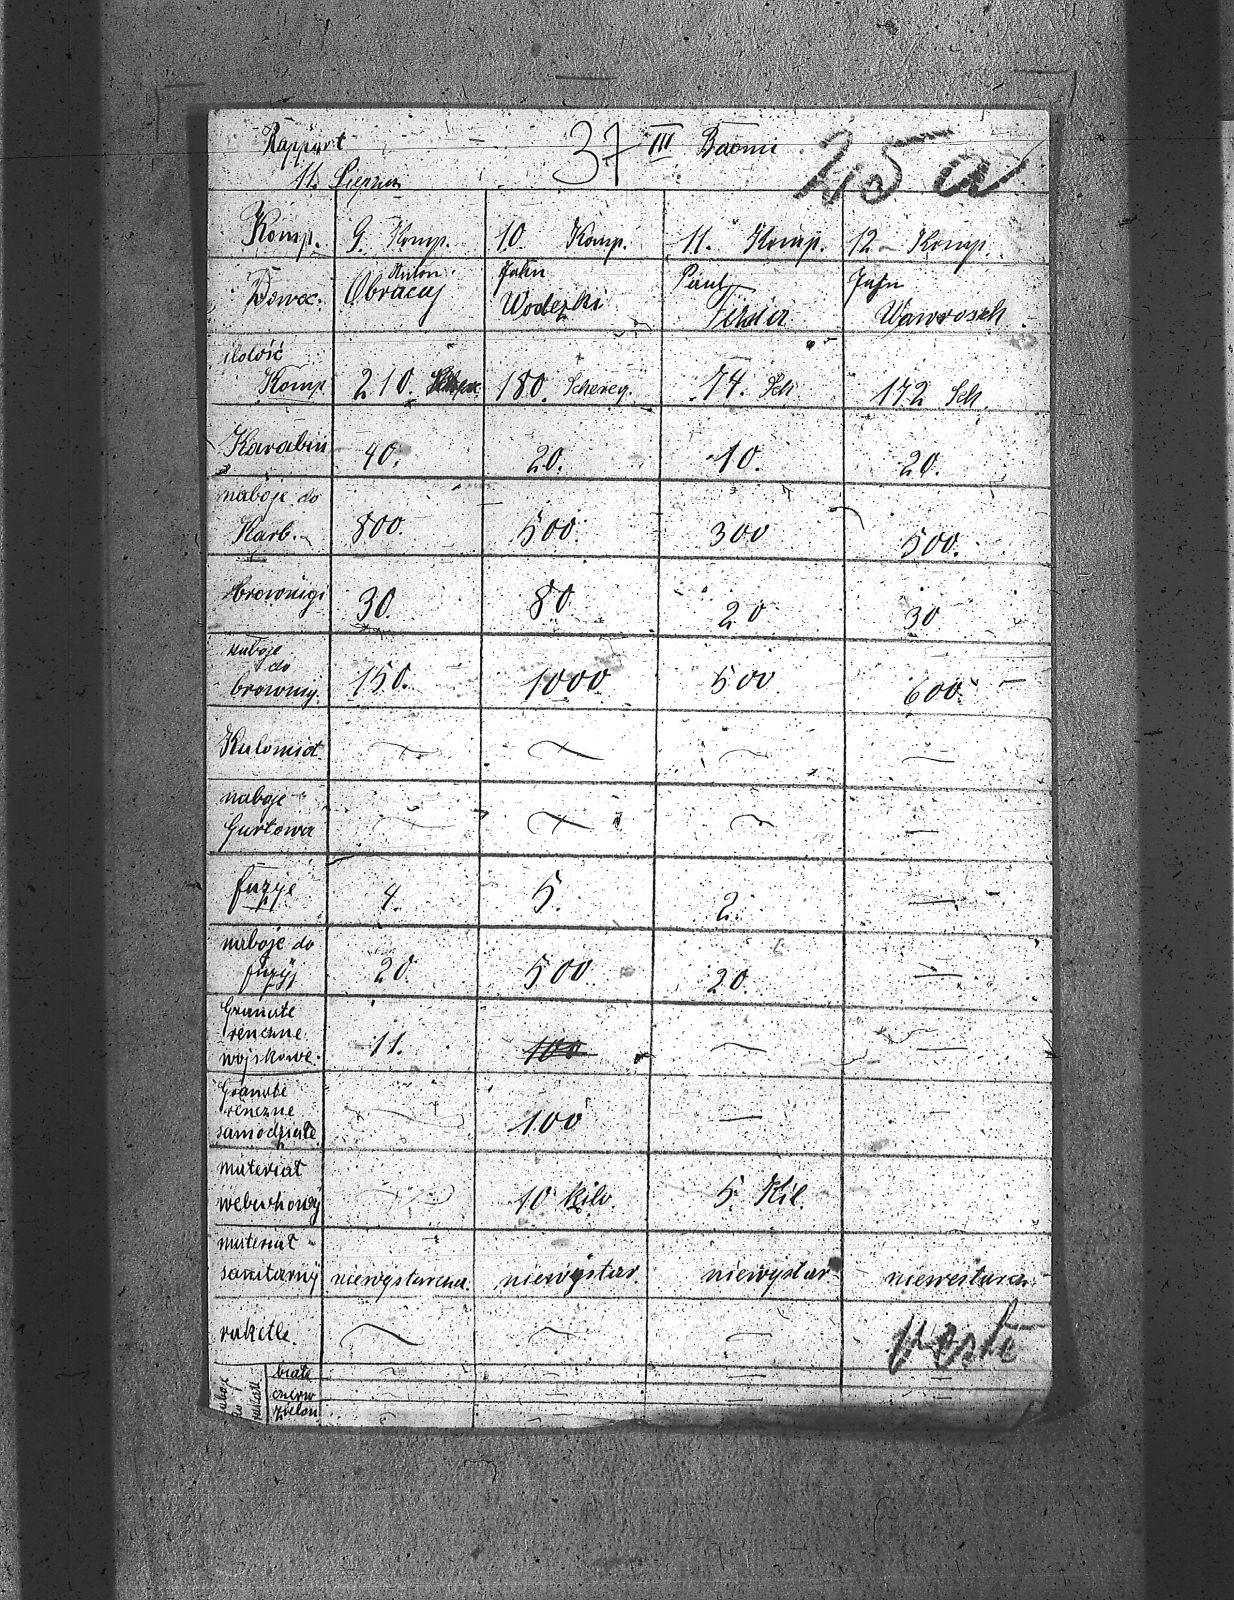 Rapport 37 III Baonu 25 a
11. Sierpn
Komp. 9. Komp. 10. Komp. 11. Komp. 12 Komp.
Dowoc. Anton Obracaj John Wodezki Paul John Wawrosch
ilolość
Komp. 210. 180. Schereg. 74. Sch 172 Sch.
Karabin 40. 20. 10. 20.
naboje do
Karb. 800. 500. 300 500.
brownigi 30. 80 20 30
naboje
do
brownig. 150. 1000 500 600
Kulomiot
naboje
Gurtowa
fuzyje 4. 5. 2. —
naboje do
fuzyj 20. 500 20. —
Granate
renczne
wojskowe. 11. 100 — —
Granate
renczne
samodziale 100 — —
materiat
weburhowy 10 kilo. 5. Kil.
materiat
sanitarny niewystarcza. niewystar. niewystar niewestarcz.
raketle.
biate
czerw
zielon